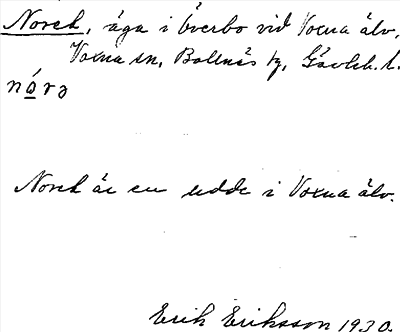 Noret, äga i Överbo vid Voxna älv,
Voxna sn, Bollnäs tg, Gävleb. l.
nórə
Noret är en udde i Voxna älv.
Erik Eriksson 1930.